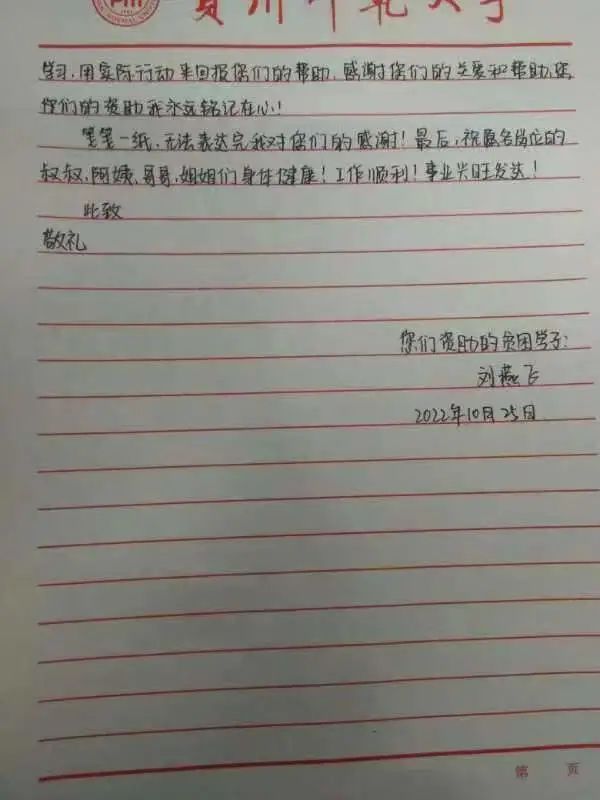 贵州师范大学
学习，用实际行动来回报您们的帮助，感谢您们的关爱和帮助，您
您们的资助我永远铭记在心！
笔笔一纸，无法表达完我对您们的感谢！最后，祝愿各岗位的
叔叔，阿姨，哥哥，姐姐们身体健康！工作顺利！事业兴旺发达！
此致
敬礼
您们资助的贫困学子：
刘燕飞
2022年10月25日
第 页